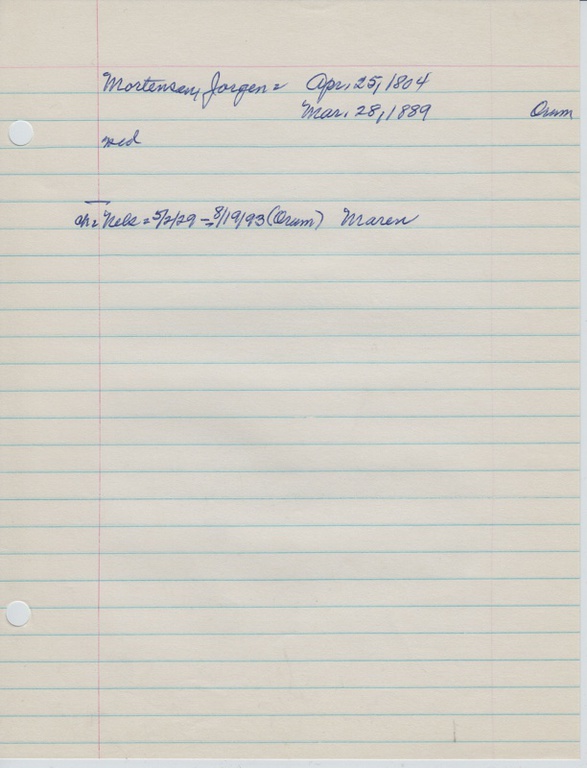 Mortensen, Jorgen = Apr. 25, 1804
Mar. 28, 1889 Orum
wed
ch: Nels = 5/2/29 - 8/19/93 (Orum) Maren